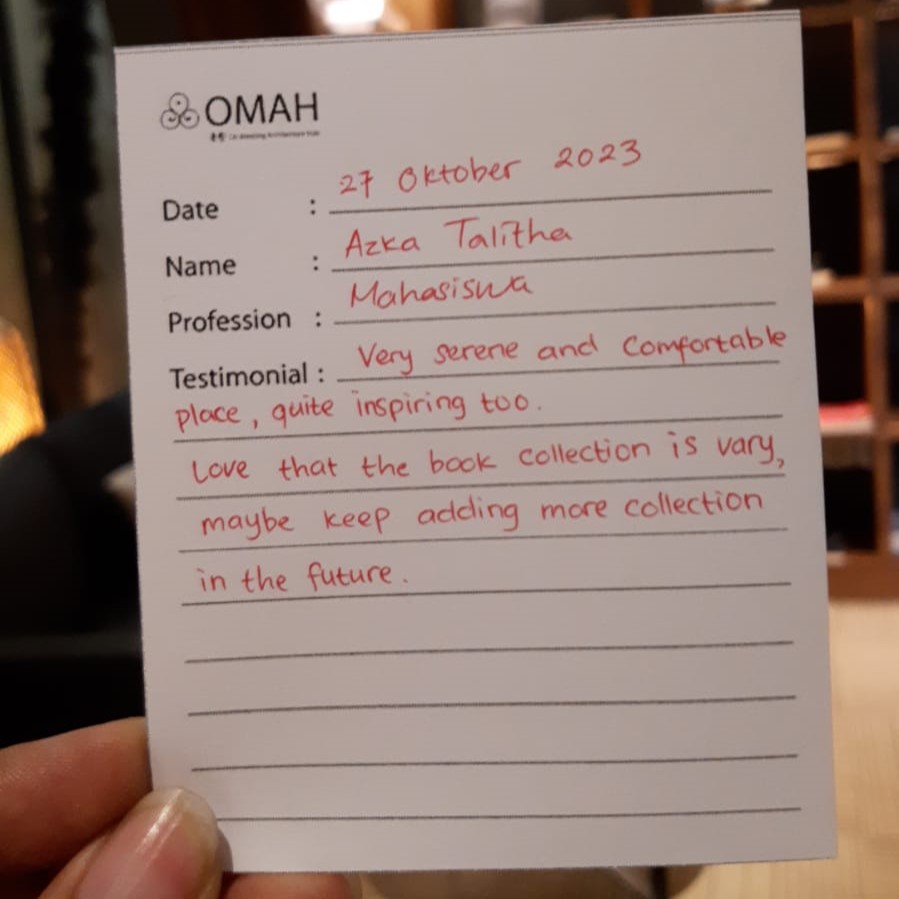 OMAH
Date : 27 Oktober 2023
Name : Azka Talitha
Profession : Mahasiswa
Testimonial : Very serene and comfortable
place, quite inspiring too.
Love that the book collection is vary,
maybe keep adding more collection
in the future.